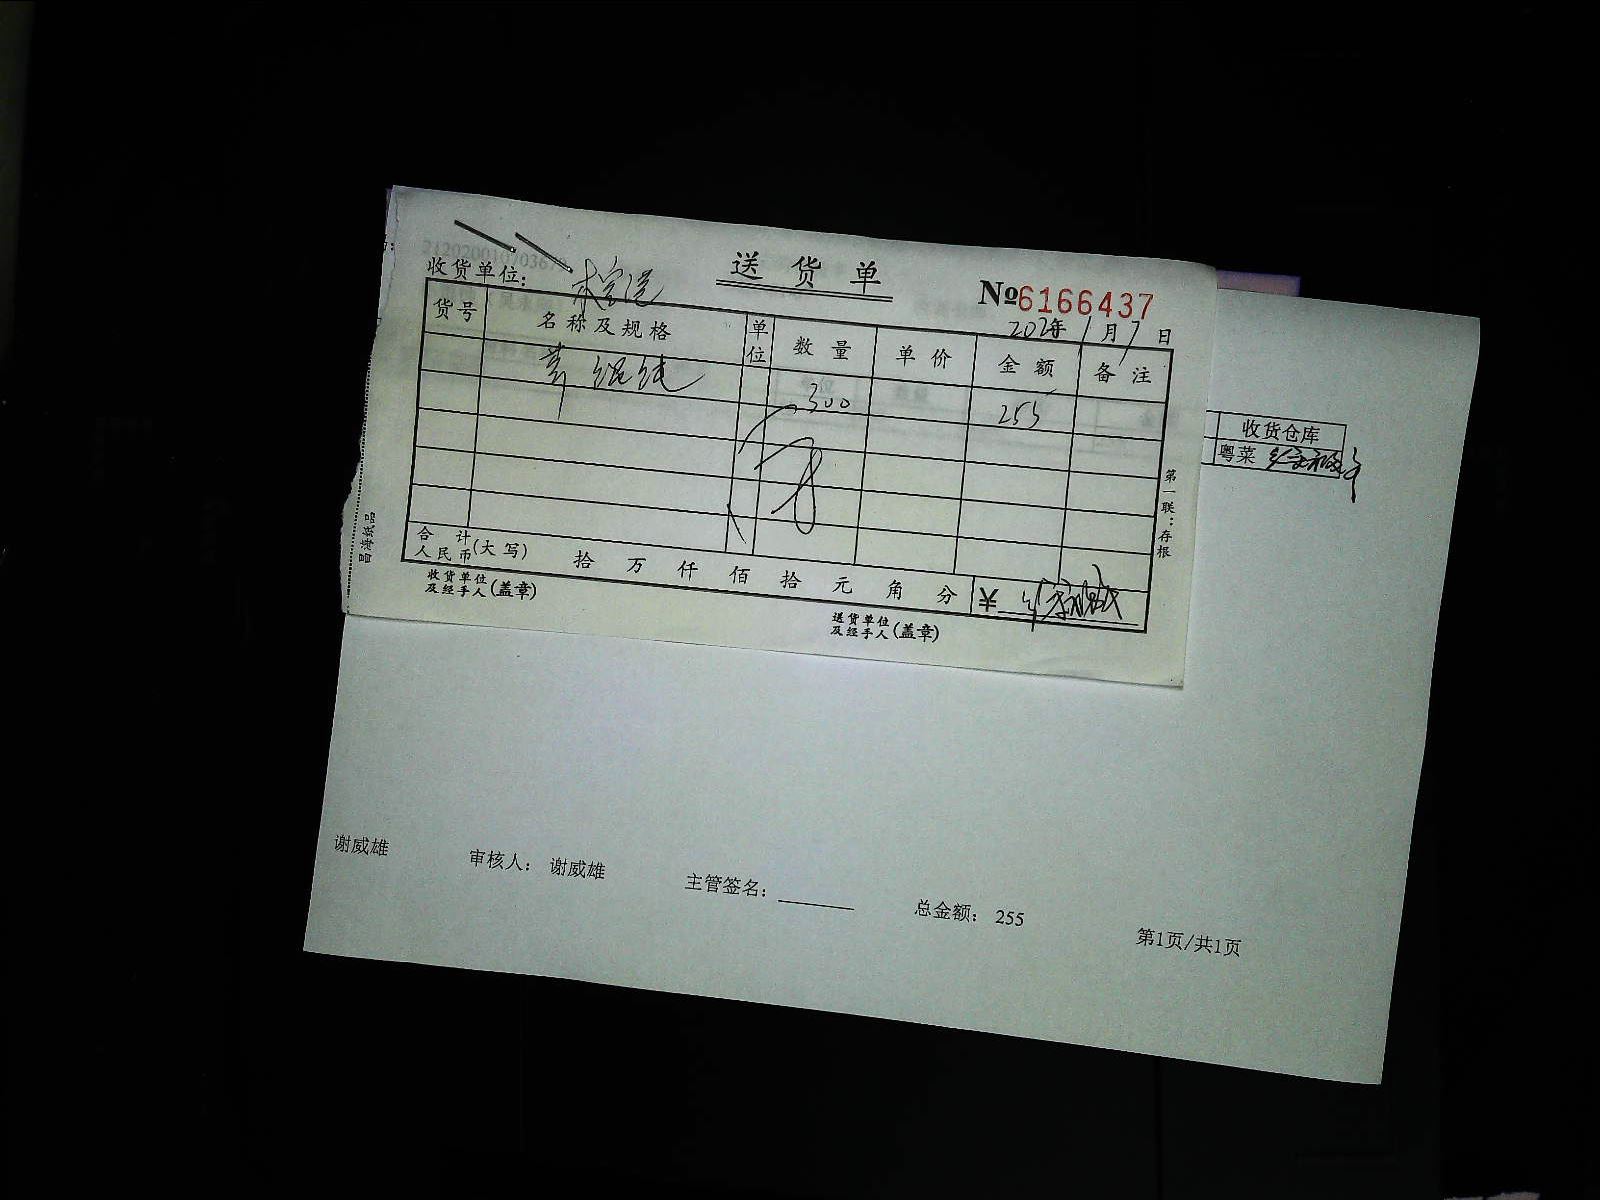 送货单
收货单位:
№6166437
202 年 1 月 7 日
货号 名称及规格 单位 数量 单价 金额 备注
300 255
合计 人民币(大写) 拾 万 仟 佰 拾 元 角 分 ¥
收货单位及经手人(盖章)
送货单位及经手人(盖章)
第一联:存根
昌海纸品
收货仓库
粤菜
谢威雄 审核人: 谢威雄 主管签名: 总金额: 255 第1页/共1页